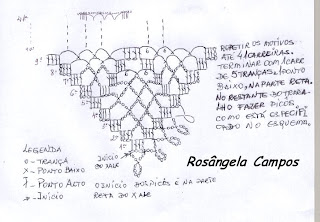 4ª
3ª
REPETIR OS MOTIVOS
ATÉ 41 CARREIRAS.
TERMINAR COM 1 CARR
DE 5 TRANÇAS, 1 PONTO
BAIXO, NA PARTE RETA.
NO RESTANTE DO TRABA
LHO FAZER BICOS,
COMO ESTÁ ESPECIFI
CADO NO ESQUEMA.
LEGENDA
O - TRANÇA
X - PONTO BAIXO
PONTO ALTO
INÍCIO
INÍCIO
DO XALE
O INÍCIO DOS BICOS É NA PARTE
RETA DO XALE
Rosângela Campos